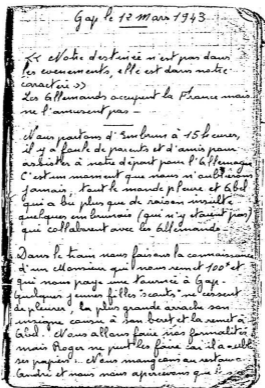 Gap le 12 Mars 1943
<< Notre destinée n'est pas dans
les evenements, elle est dans notre
caractère >>
Les Allemands occupent la France mais
ne l'amusent pas -
Nous partons d'Embrun à 15 heures,
il y a foule de parents et d'amis pour
assister à notre départ pour l'Allemagne
C'est un moment que nous n'oublierons
jamais, tout le monde pleure et Abel
qui a bu plus que de raison insulte
quelques embrunais (qui n'y étaient pas)
qui collaborent avec les Allemands.
Dans le train nous faisons la connaissance
d'un Monsieur qui nous remet 100f et
qui nous paye une tournée à Gap.
Quelques jeunes filles scouts ne cessent
de pleurer, la plus grande
comme et la remet à
Abel. Nous allons faire les formalités
mais Roger ne peut les faire car il a oublié
ses papiers. Nous mangeons au restau-
et nous nous apercevons que